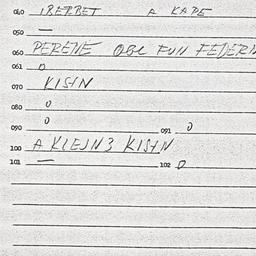 040 IBERBET A KAPE
050 —
060 PERENE ODER FUN FEDERN
061 0
070 KISHN
080 0
090 0 091 0
100 A KLEJN3 KISHN
101 — 102 0